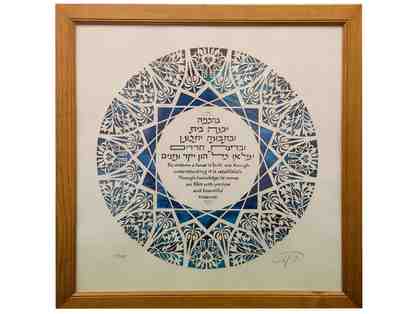 בחכמה
יבנה בית
ובתבונה יתכונן
ובדעת חדרים
ימלאו כל הון יקר ונעים
By wisdom a house is built, and through
understanding it is established;
Through knowledge its rooms
are filled with precious
and beautiful
treasures